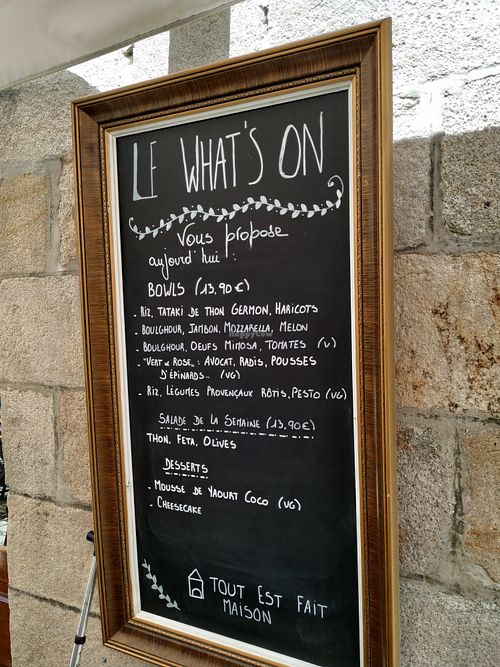 LE WHAT'S ON
Vous propose
aujourd'hui :
BOWLS (13,90€)
- RIZ, TATAKI DE THON GERMON, HARICOTS
- BOULGHOUR, JAMBON, MOZZARELLA, MELON
- BOULGHOUR, OEUFS MIMOSA, TOMATES (V)
- "VERT & ROSE" : AVOCAT, RADIS, POUSSES
D'ÉPINARDS.. (VG)
- RIZ, LÉGUMES PROVENÇAUX RÔTIS, PESTO (VG)
SALADE DE LA SEMAINE (13,90€)
THON, FETA, OLIVES
DESSERTS
- MOUSSE DE YAOURT COCO (VG)
- CHEESECAKE
TOUT EST FAIT
MAISON
HappyCow